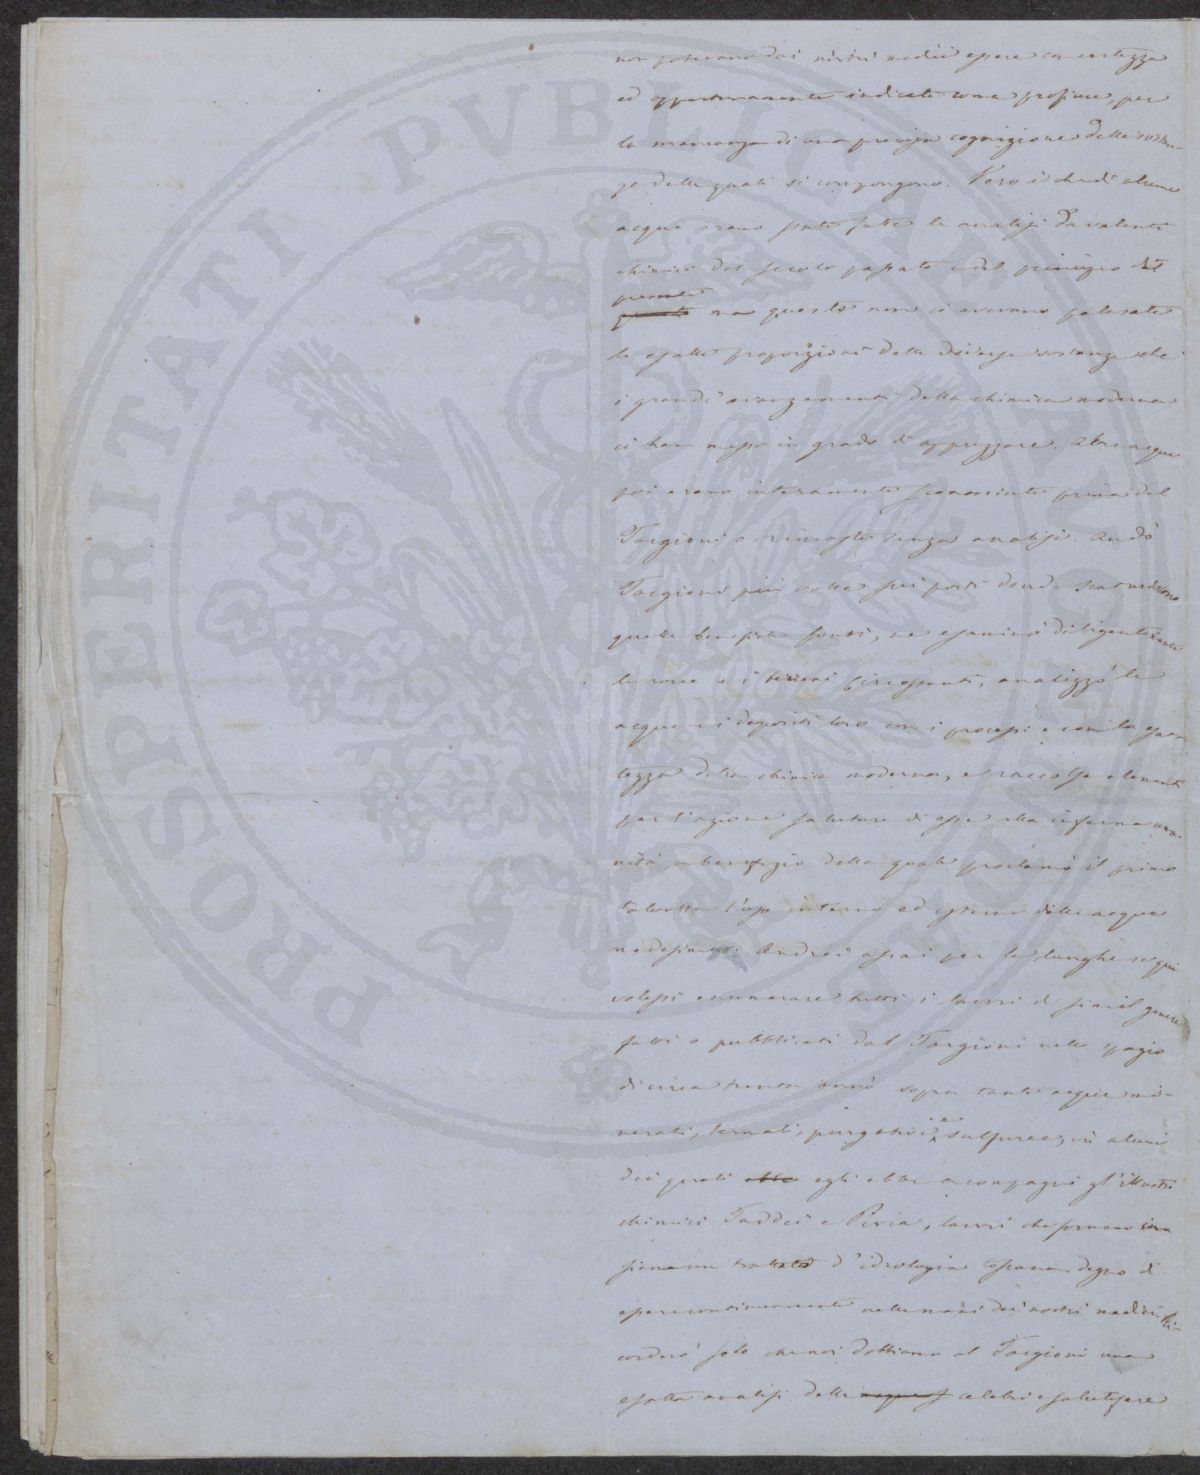 non potevano dai nostri medici essere con certezza
ed opportunamente indicate come proficue, per
la mancanza di una precisa cognizione delle sostan-
ze delle quali si compongono. Vero è che di alcune
acque erano state fatte le analisi da valenti
chimici del secolo passato e del principio del
presente
questo ma queste non ci avevano palesate
le esatte proporzioni delle diverse sostanze che
i grandi avanzamenti della chimica moderna
ci han messo in grado di apprezzare. Altre acque
poi erano interamente sconosciute prima del
Targioni o rimaste senza analisi. Andò
Targioni più volte sui posti donde scaturiscono
quelle benefiche fonti, ne esaminò diligentemente
le rocce e i terreni circostanti, analizzò le
acque e i depositi loro con i processi e con la esat-
tezza della chimica moderna, e raccolse elementi
per l'azione salutare di esse alla inferma uma-
nità a benefizio della quale proclamò il primo
talvolta l'uso interno ed esterno delle acque
medesime. Andrei assai per le lunghe se qui
volessi enumerare tutti i lavori di simil genere
fatti e pubblicati dal Targioni nello spazio
di circa trenta anni sopra tante acque mi-
nerali, termali, purgative e sulfuree, in alcuni
dei quali ebbe egli ebbe a compagni gl'illustri
chimici Taddei e Piria, lavori che formano
un trattato d'idrologia toscana degno di
essere continuamente nelle mani dei nostri medici. Ri-
corderò solo che noi dobbiamo al Targioni una
esatta analisi delle acque celebri e salutifere